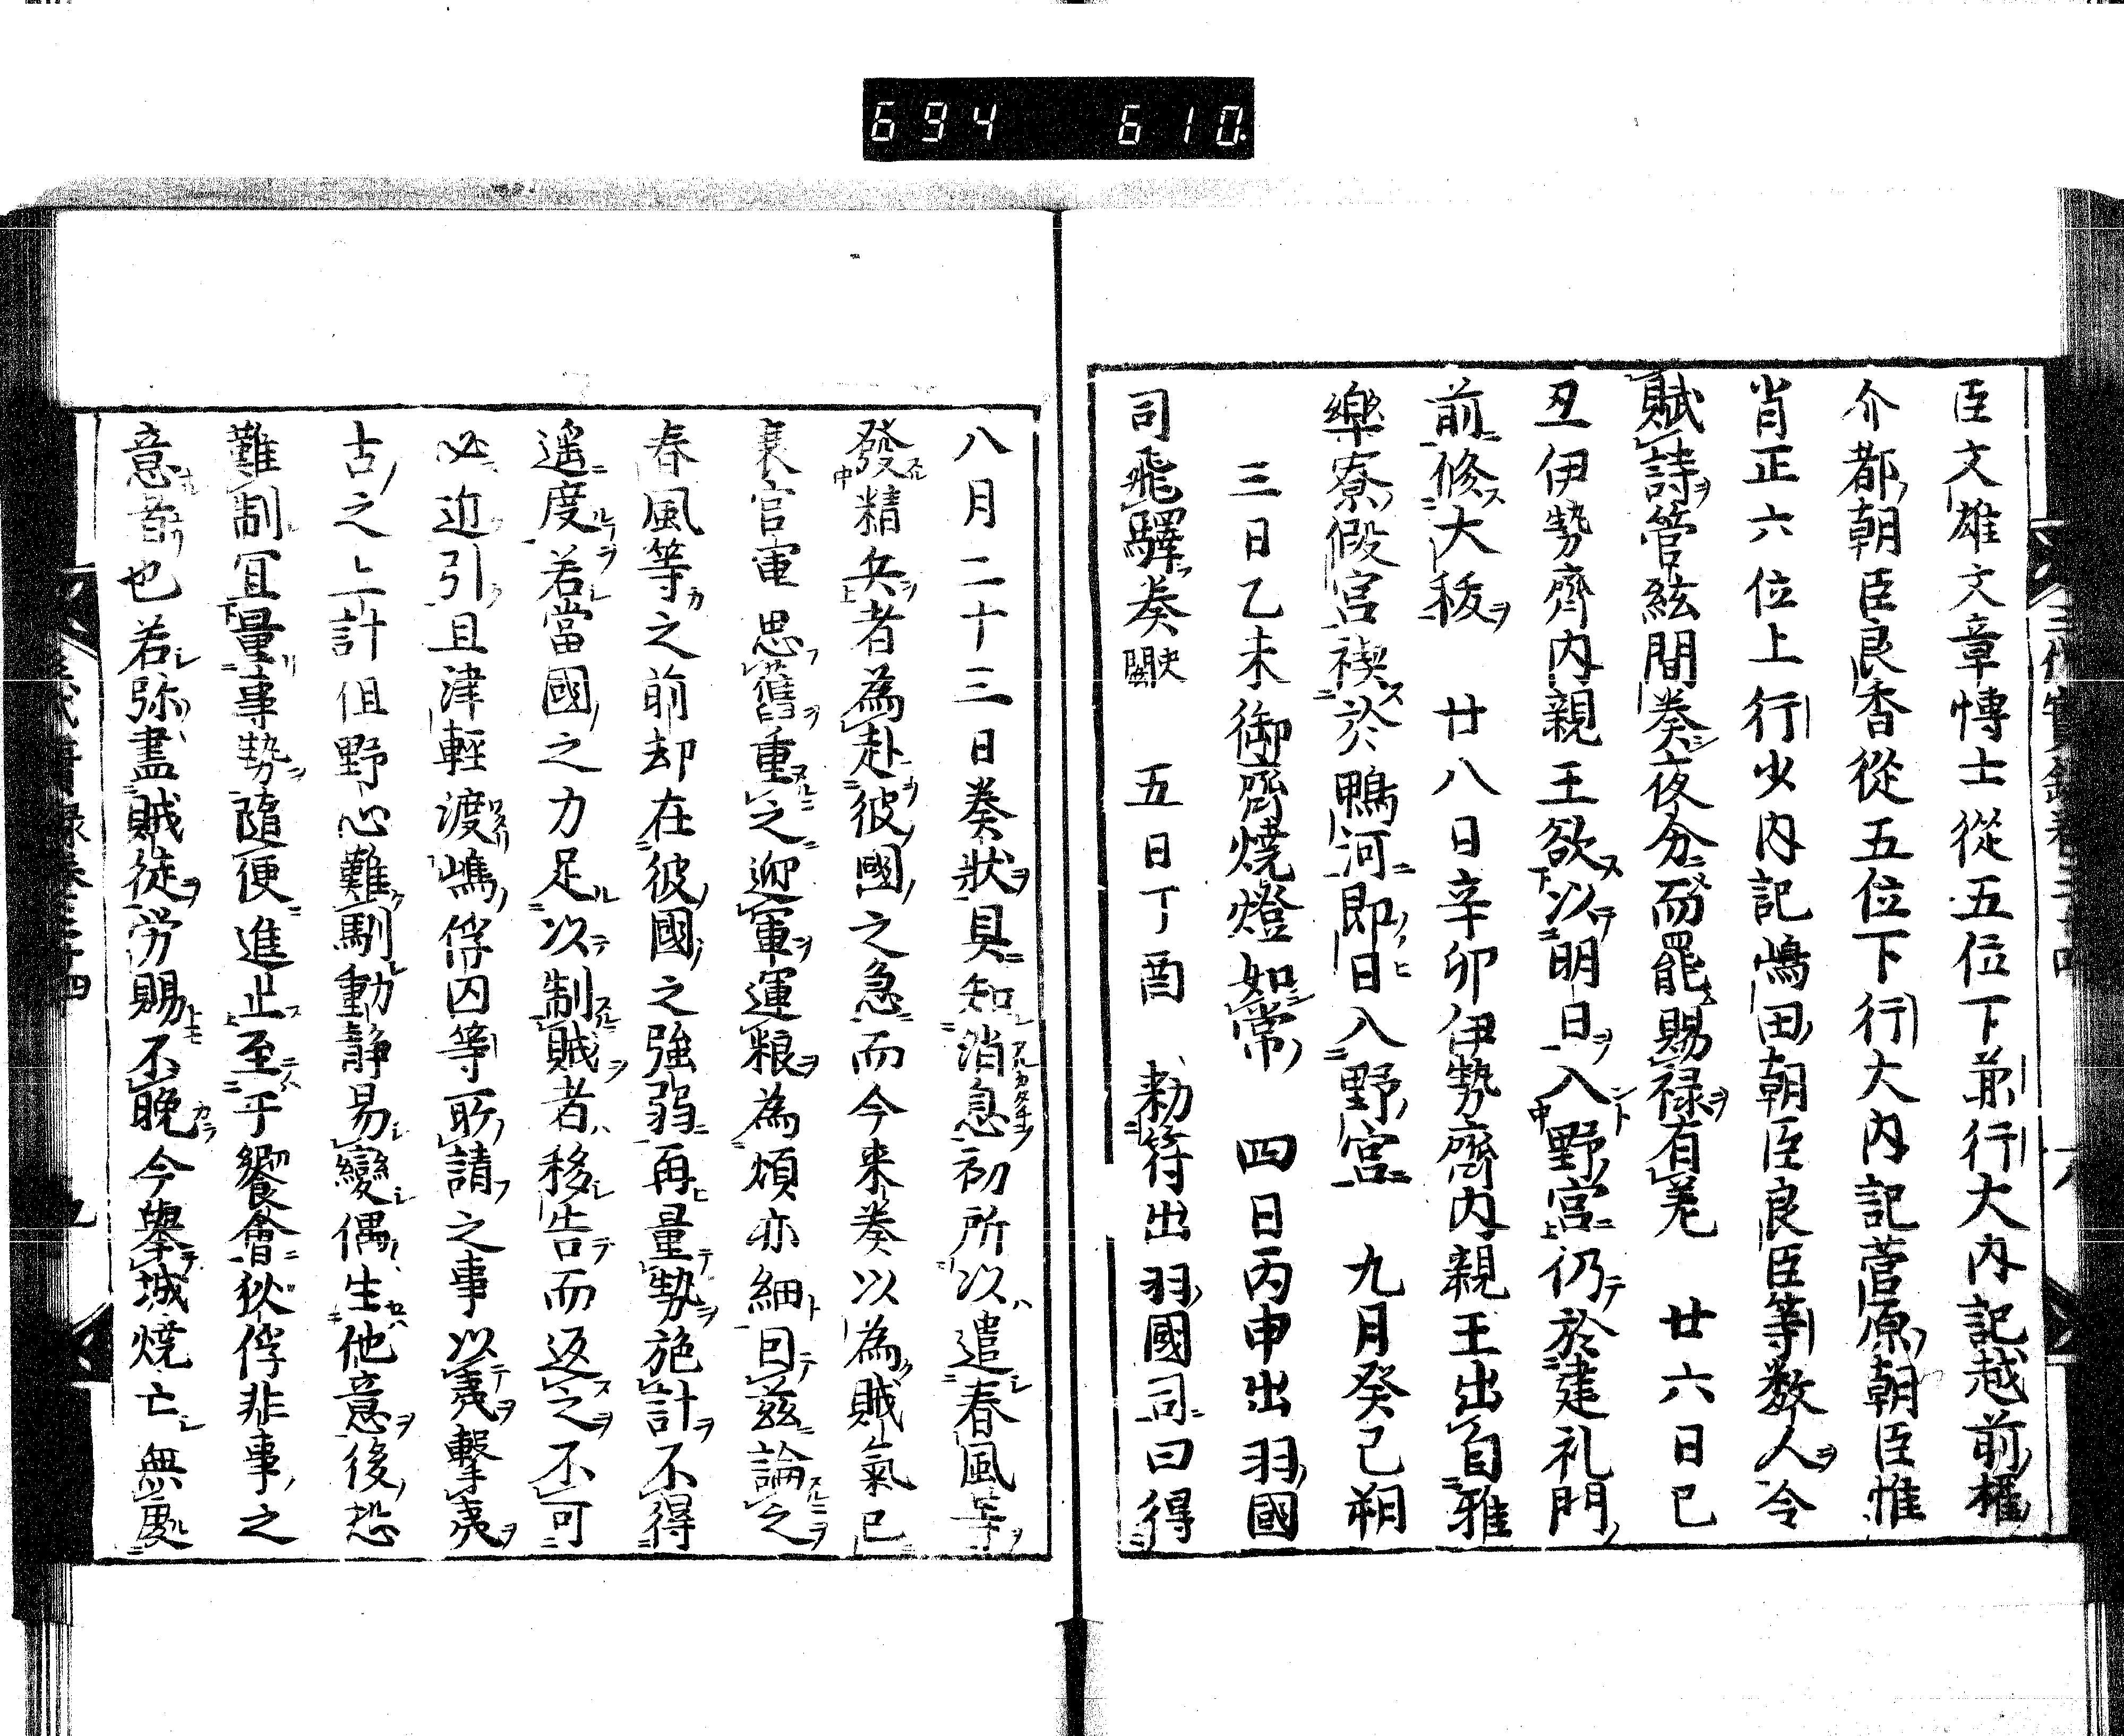 694 610.
臣文雄文章博士從五位下兼行大内記越前權
介都朝臣良香從五位下行大内記菅原朝臣惟
肖正六位上行少内記嶋田朝臣良臣等数人令
賦詩管絃間奏夜分而罷賜禄有差　廿六日己
丑伊勢齊内親王欲以明日入野宮仍於建礼門
前修大秡　廿八日辛卯伊勢齊内親王出自雅
樂寮假宮禊於鴨河即日入野宮　九月癸巳朔
三日乙未御齊燒燈如常　四日丙申出羽國
司飛驛奏闕史　五日丁酉　勑符出羽國司曰得
八月二十三日奏狀具知消息初所以遣春風等
發精兵者為赴彼國之急而今来奏以為賊氣已
衰官軍思舊重之迎軍運粮為煩亦細回茲論之
春風等之前却在彼國之強弱再量勢施計不得
遥度若當國之力足以制賊者移告而返之不可
必近引且津輕渡嶋俘囚等所請之事以夷擊夷
古之上計但野心難馴動静易變偶生他意後恐
難制宜量事勢隨便進止至于饗會狄俘非事之
意者也若弥盡賊徒労賜不晩今擧城燒亡無處